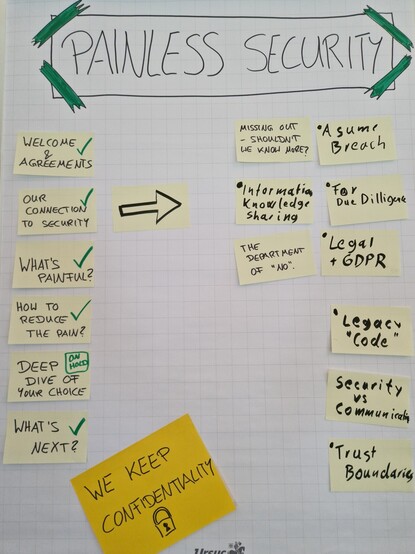 PAINLESS SECURITY
WELCOME
&
AGREEMENTS
OUR
CONNECTION
TO SECURITY
WHAT'S
PAINFUL?
HOW TO
REDUCE
THE PAIN?
DEEP
ON
HOLD
DIVE OF
YOUR CHOICE
WHAT'S
NEXT?
MISSING OUT
- SHOULDN'T
WE KNOW MORE?
Information
Knowledge
Sharing
THE
DEPARTMENT
OF "NO".
• Asume
Breach
• For
Due Dilligence
• Legal
+ GDPR
• Legacy
"Code"
Security
vs
Communication
• Trust
Boundaries
WE KEEP
CONFIDENTIALITY
Ursus